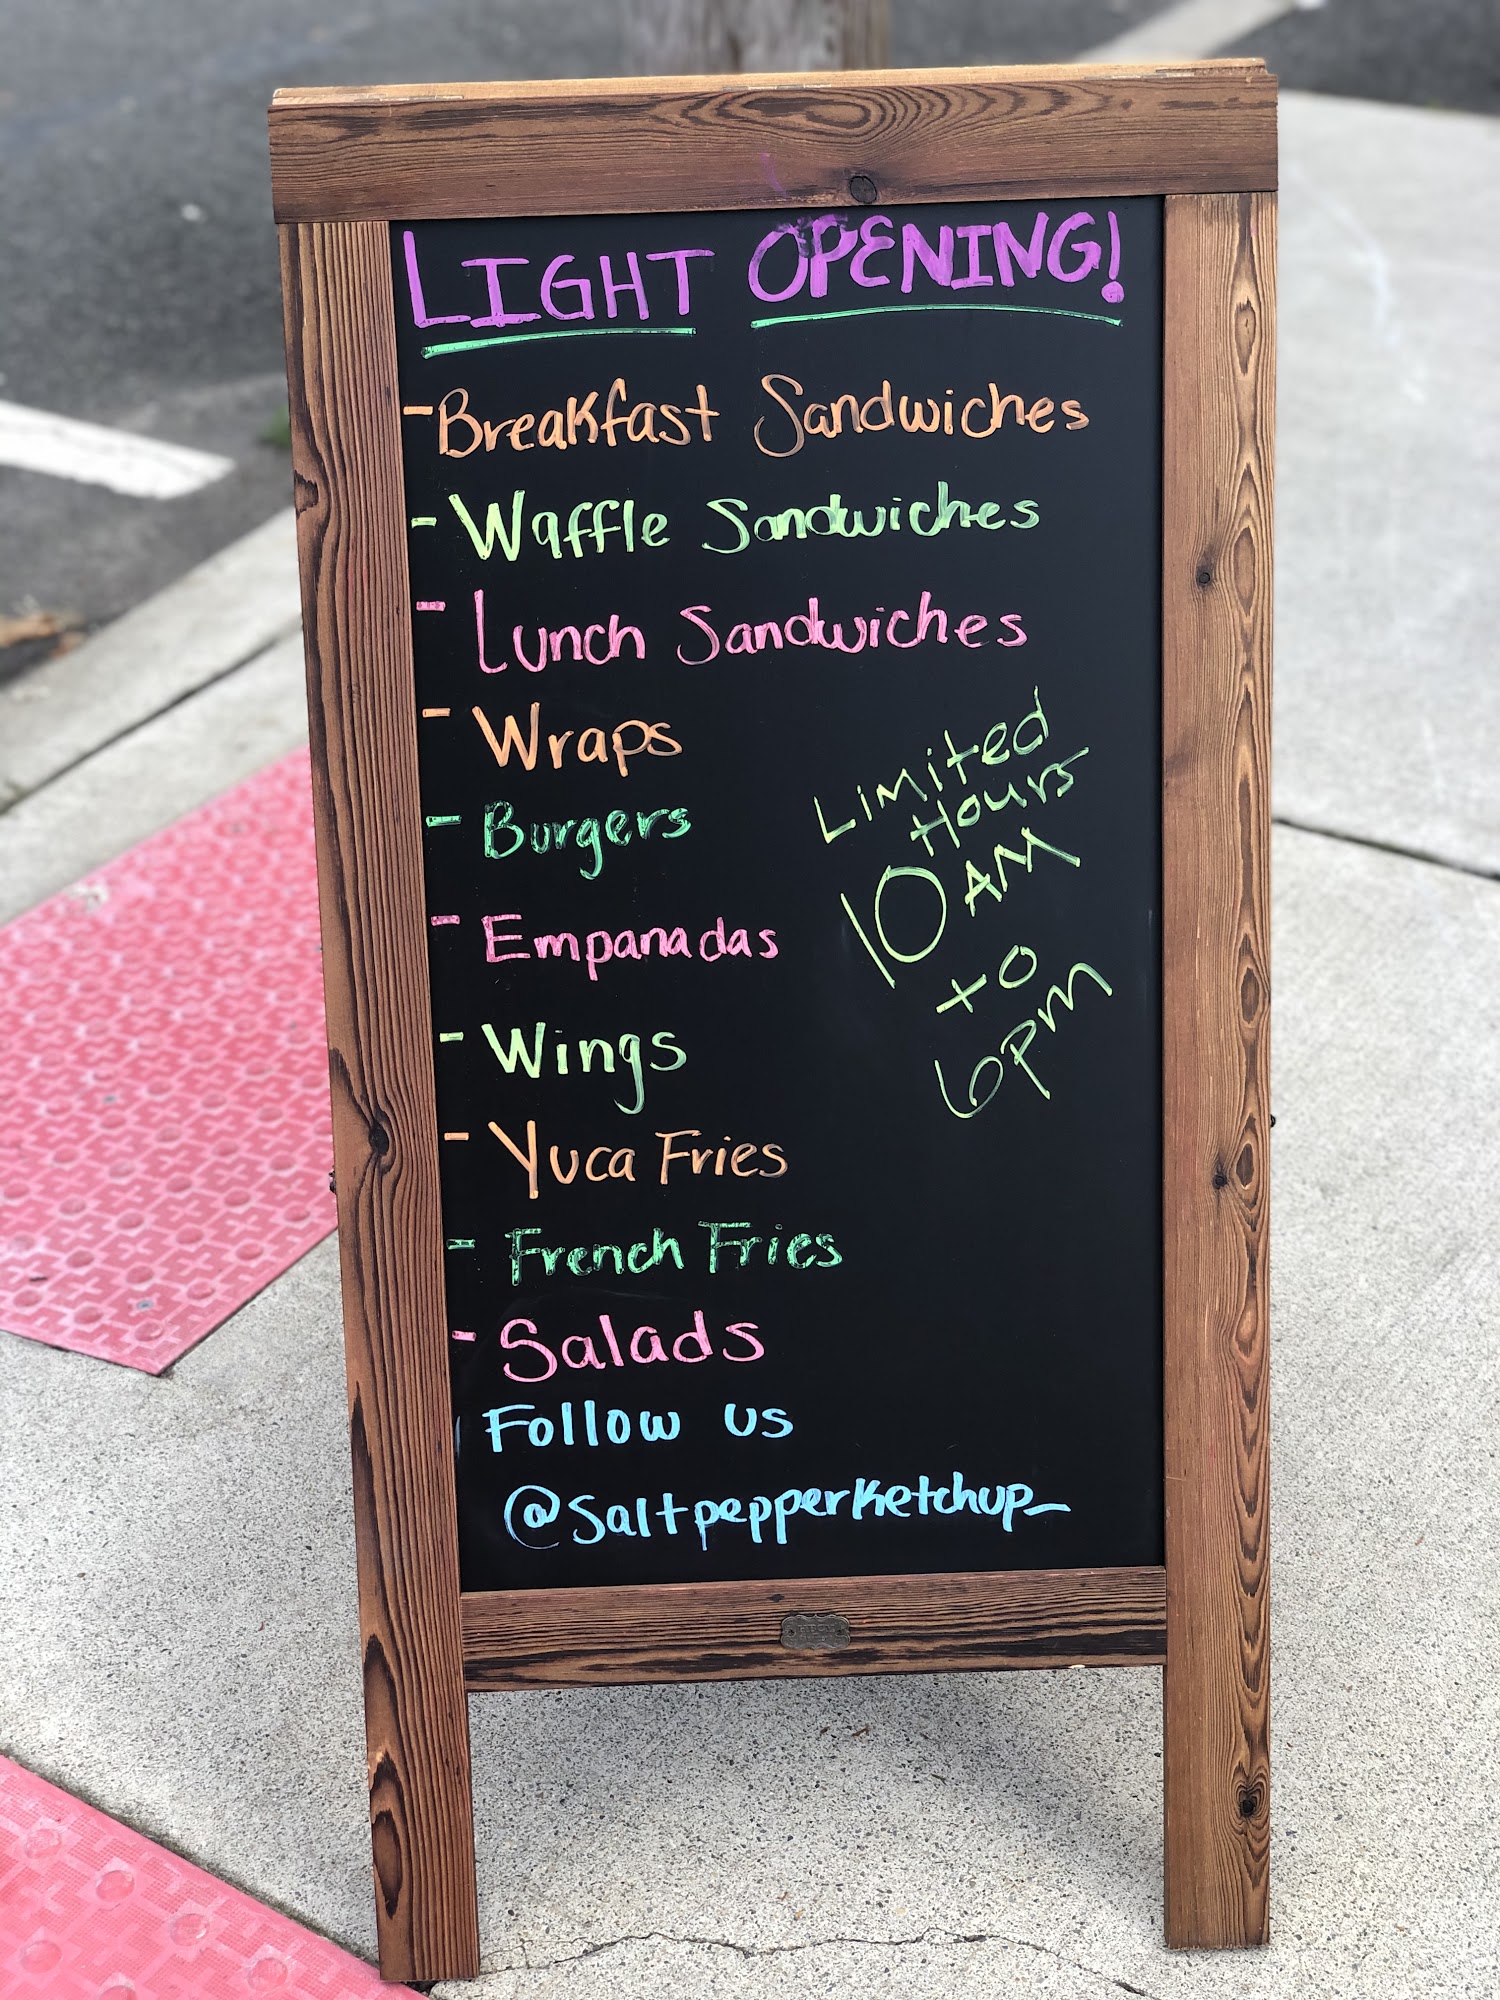 LIGHT OPENING!
- Breakfast Sandwiches
- Waffle Sandwiches
- Lunch Sandwiches
- Wraps
- Burgers
- Empanadas
- Wings
- Yuca Fries
- French Fries
- Salads
Limited
Hours
10 AM
to
6PM
Follow us
@Saltpepperketchup_